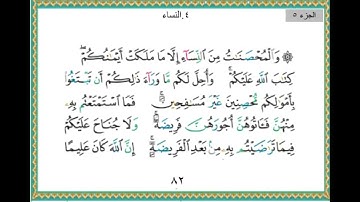 الجزء ٥
٤ـ النساء
۞ وَٱلْمُحْصَنَٰتُ مِنَ ٱلنِّسَآءِ إِلَّا مَا مَلَكَتْ أَيْمَٰنُكُمْ ۖ
كِتَٰبَ ٱللَّهِ عَلَيْكُمْ ۚ وَأُحِلَّ لَكُم مَّا وَرَآءَ ذَٰلِكُمْ أَن تَبْتَغُوا۟
بِأَمْوَٰلِكُم مُّحْصِنِينَ غَيْرَ مُسَٰفِحِينَ ۚ فَمَا ٱسْتَمْتَعْتُم بِهِۦ
مِنْهُنَّ فَـَٔاتُوهُنَّ أُجُورَهُنَّ فَرِيضَةً ۚ وَلَا جُنَاحَ عَلَيْكُمْ
فِيمَا تَرَٰضَيْتُم بِهِۦ مِنۢ بَعْدِ ٱلْفَرِيضَةِ ۚ إِنَّ ٱللَّهَ كَانَ عَلِيمًا
٨٢